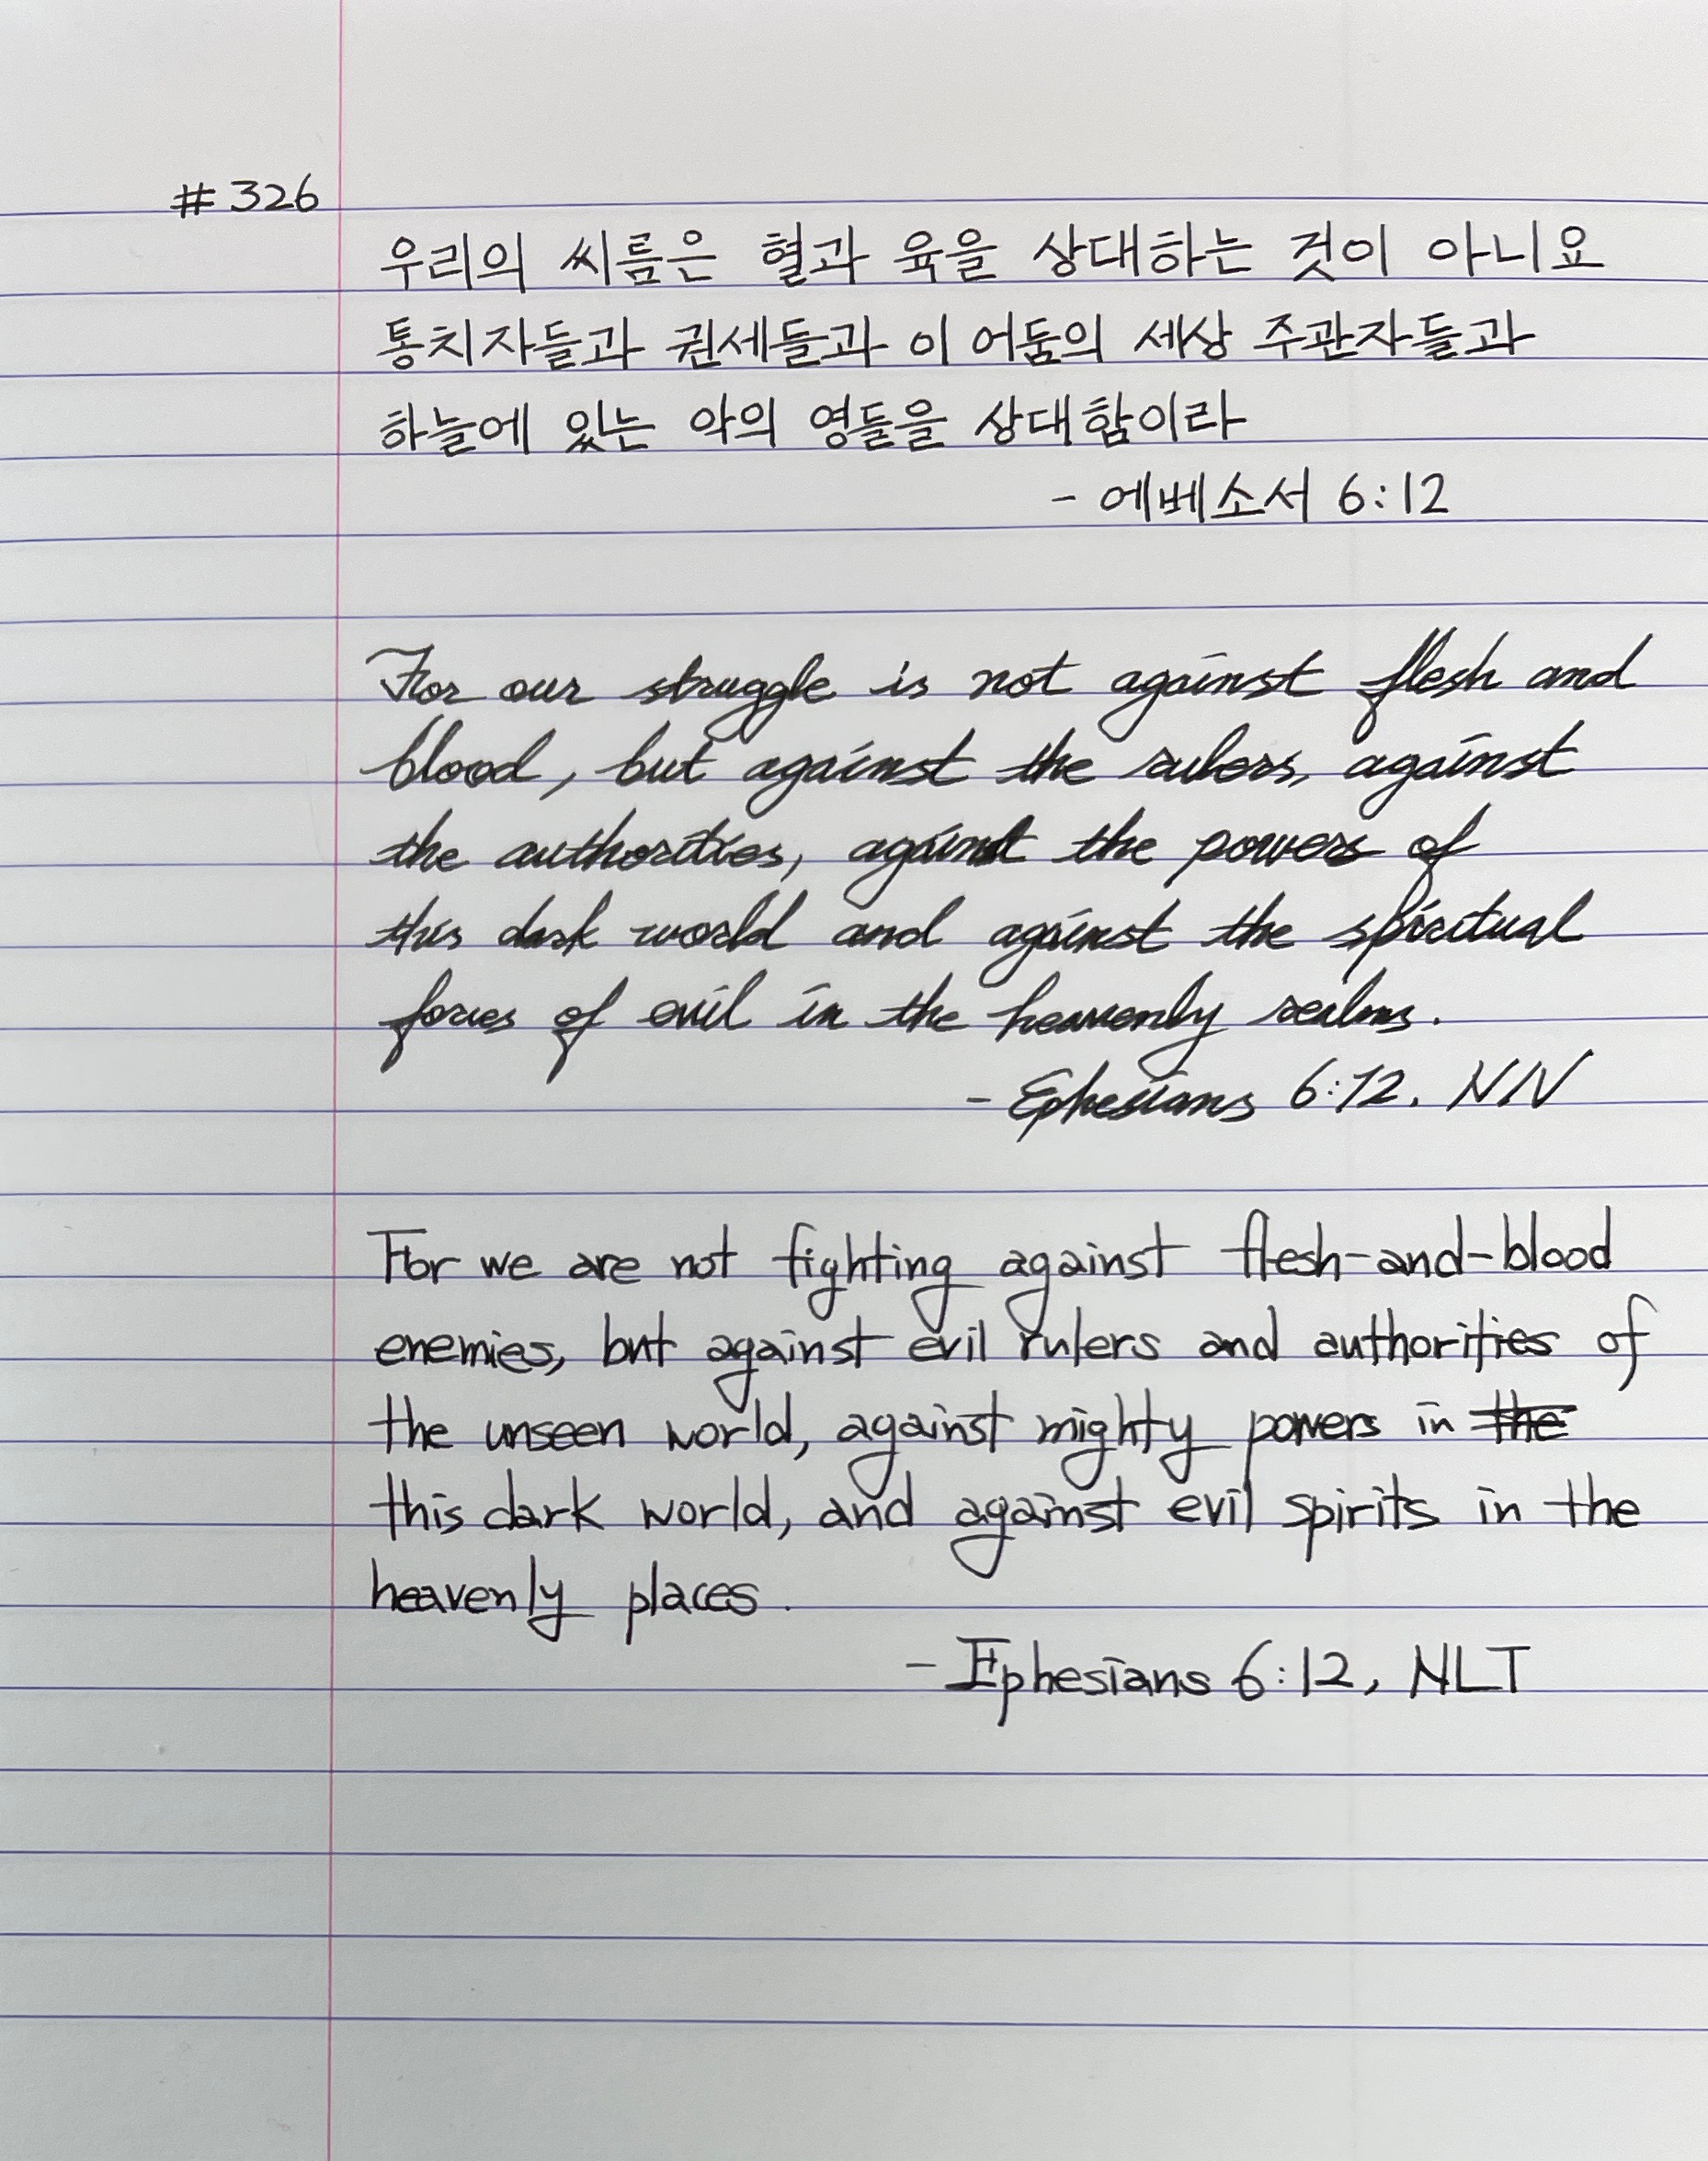 #326
우리의 씨름은 혈과 육을 상대하는 것이 아니요
통치자들과 권세들과 이 어둠의 세상 주관자들과
하늘에 있는 악의 영들을 상대함이라
- 에베소서 6:12
For our struggle is not against flesh and
blood, but against the rulers, against
the authorities, against the powers of
this dark world and against the spiritual
forces of evil in the heavenly realms.
- Ephesians 6:12, NIV
For we are not fighting against flesh-and-blood
enemies, but against evil rulers and authorities of
the unseen world, against mighty powers in the
this dark world, and against evil spirits in the
heavenly places.
- Ephesians 6:12, NLT